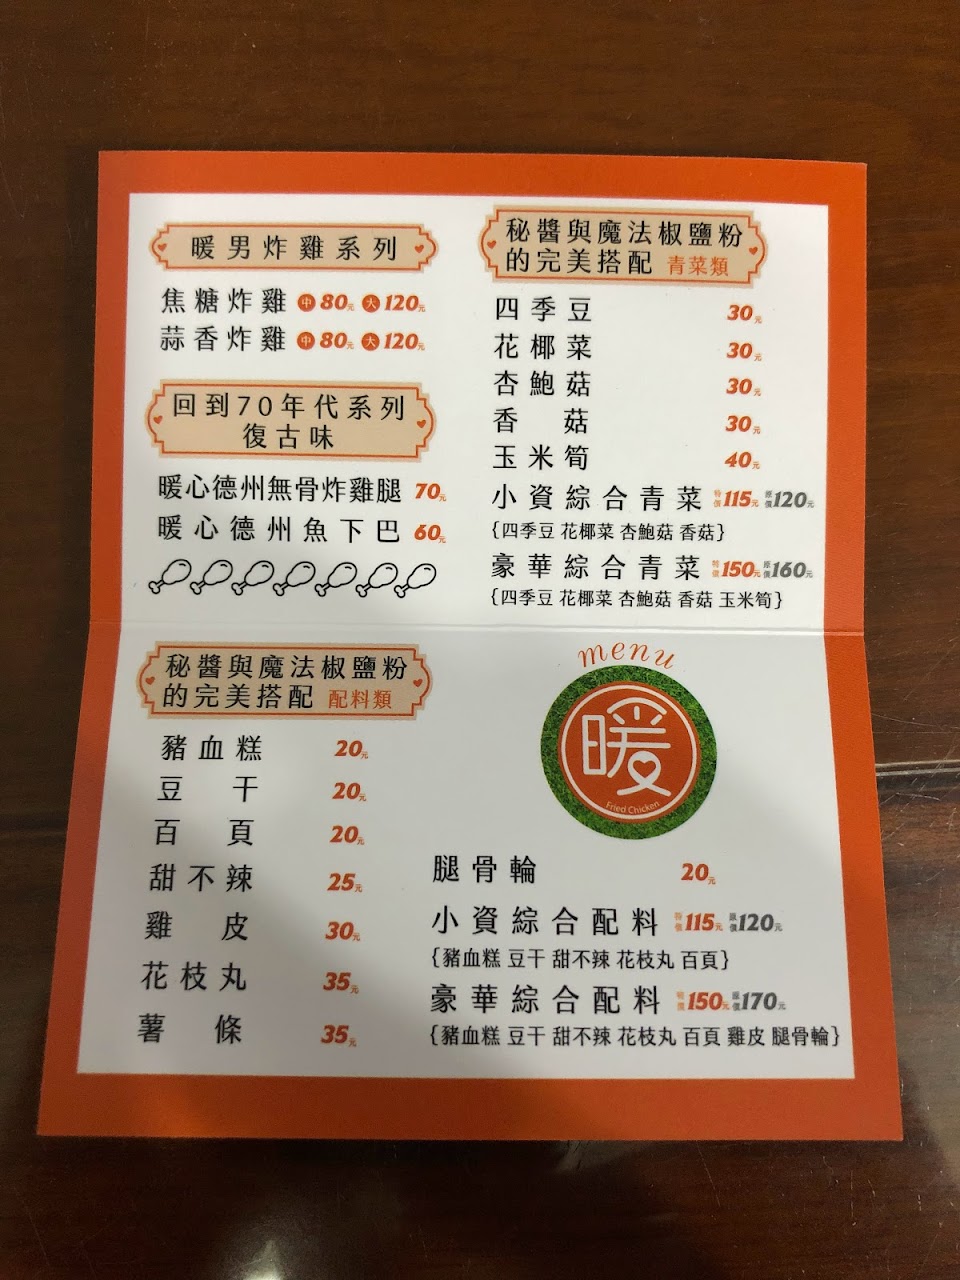 暖男炸雞系列
焦糖炸雞 中80元 大120元
蒜香炸雞 中80元 大120元
回到70年代系列
復古味
暖心德州無骨炸雞腿 70元
暖心德州魚下巴 60元
秘醬與魔法椒鹽粉
的完美搭配 青菜類
四季豆 30元
花椰菜 30元
杏鮑菇 30元
香菇 30元
玉米筍 40元
小資綜合青菜 特價115元 原價120元
{四季豆 花椰菜 杏鮑菇 香菇}
豪華綜合青菜 特價150元 原價160元
{四季豆 花椰菜 杏鮑菇 香菇 玉米筍}
秘醬與魔法椒鹽粉
的完美搭配 配料類
豬血糕 20元
豆干 20元
百頁 20元
甜不辣 25元
雞皮 30元
花枝丸 35元
薯條 35元
menu
暖
Fried Chicken
腿骨輪 20元
小資綜合配料 特價115元 原價120元
{豬血糕 豆干 甜不辣 花枝丸 百頁}
豪華綜合配料 特價150元 原價170元
{豬血糕 豆干 甜不辣 花枝丸 百頁 雞皮 腿骨輪}